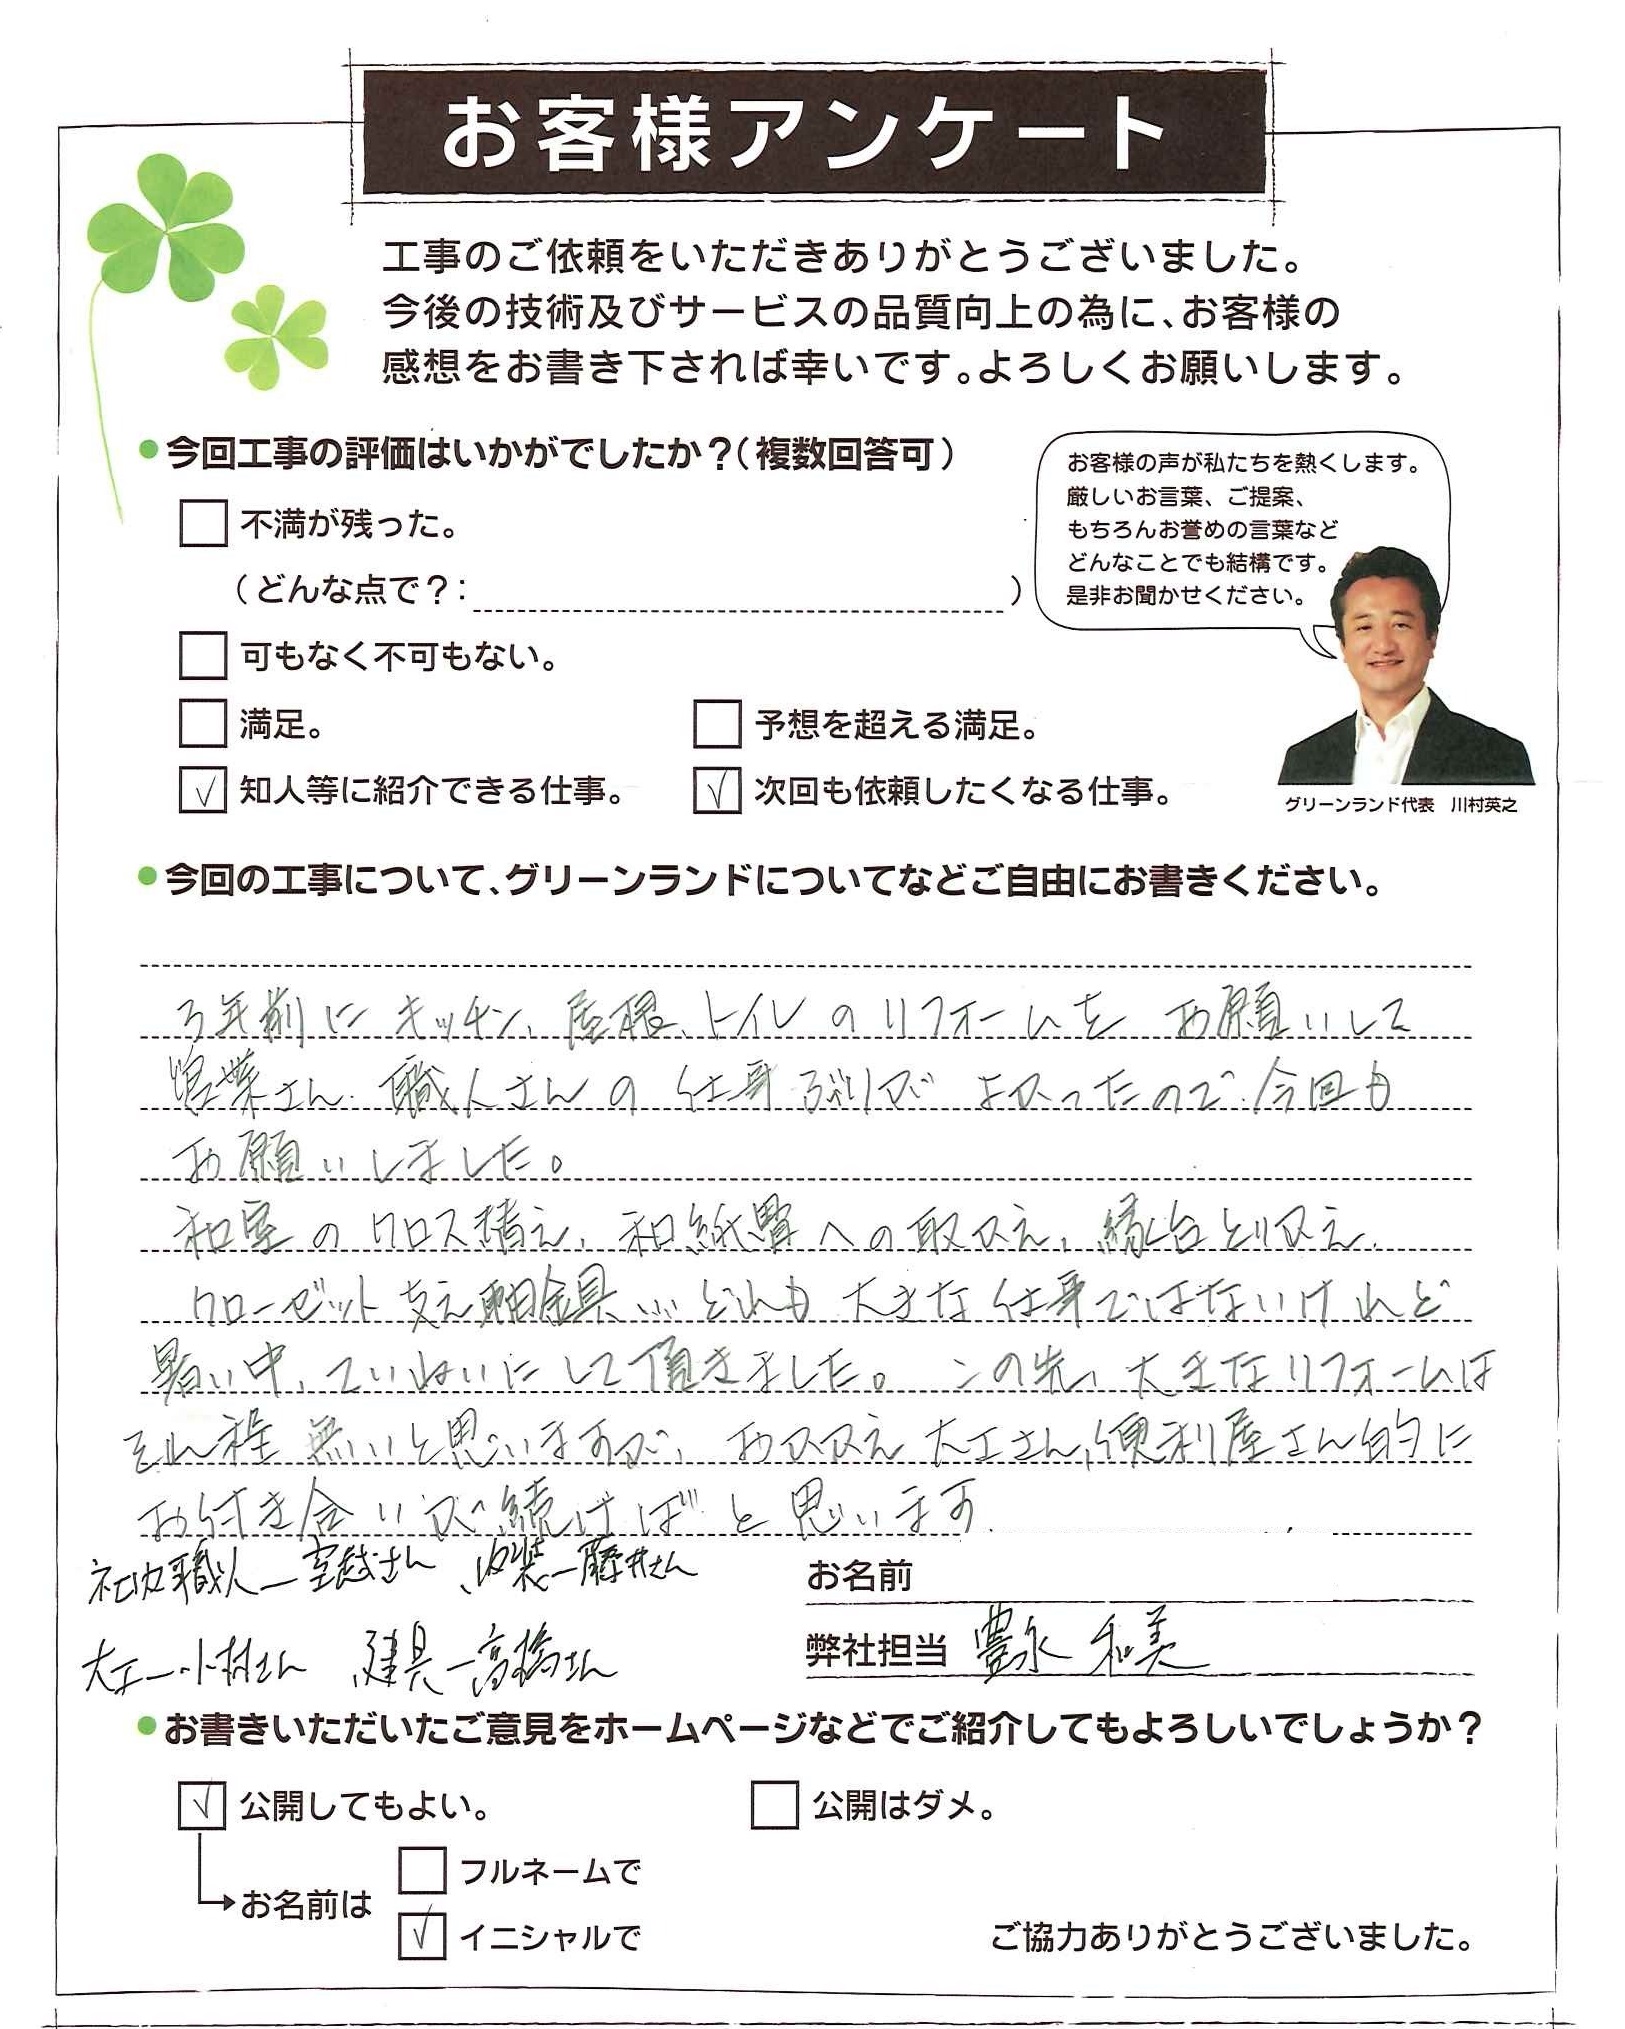 お客様アンケート
工事のご依頼をいただきありがとうございました。
今後の技術及びサービスの品質向上の為に、お客様の
感想をお書き下されば幸いです。よろしくお願いします。
●今回工事の評価はいかがでしたか?(複数回答可)
不満が残った。
(どんな点で?: )
可もなく不可もない。
満足。
予想を超える満足。
✓ 知人等に紹介できる仕事。
✓ 次回も依頼したくなる仕事。
お客様の声が私たちを熱くします。
厳しいお言葉、ご提案、
もちろんお誉めの言葉など
どんなことでも結構です。
是非お聞かせください。
グリーンランド代表 川村英之
●今回の工事について、グリーンランドについてなどご自由にお書きください。
3年前にキッチン、屋根、トイレのリフォームをお願いして
営業さん、職人さんの仕事ぶりがよかったので今回も
お願いしました。
和室のクロス替え、和紙畳への取かえ、縁台とりかえ、
クローゼット支え軸金具…どれも大きな仕事ではないけれど
暑い中、ていねいにして頂きました。この先、大きなリフォームは
それ程無いと思いますが、おかかえ大工さん、便利屋さん的に
お付き合いが続けばと思います
社内職人ー宮越さん、内装ー藤井さん
大工ー小村さん 建具ー高橋さん
お名前
弊社担当 豊永 和美
●お書きいただいたご意見をホームページなどでご紹介してもよろしいでしょうか?
✓ 公開してもよい。
公開はダメ。
お名前は
フルネームで
✓ イニシャルで
ご協力ありがとうございました。